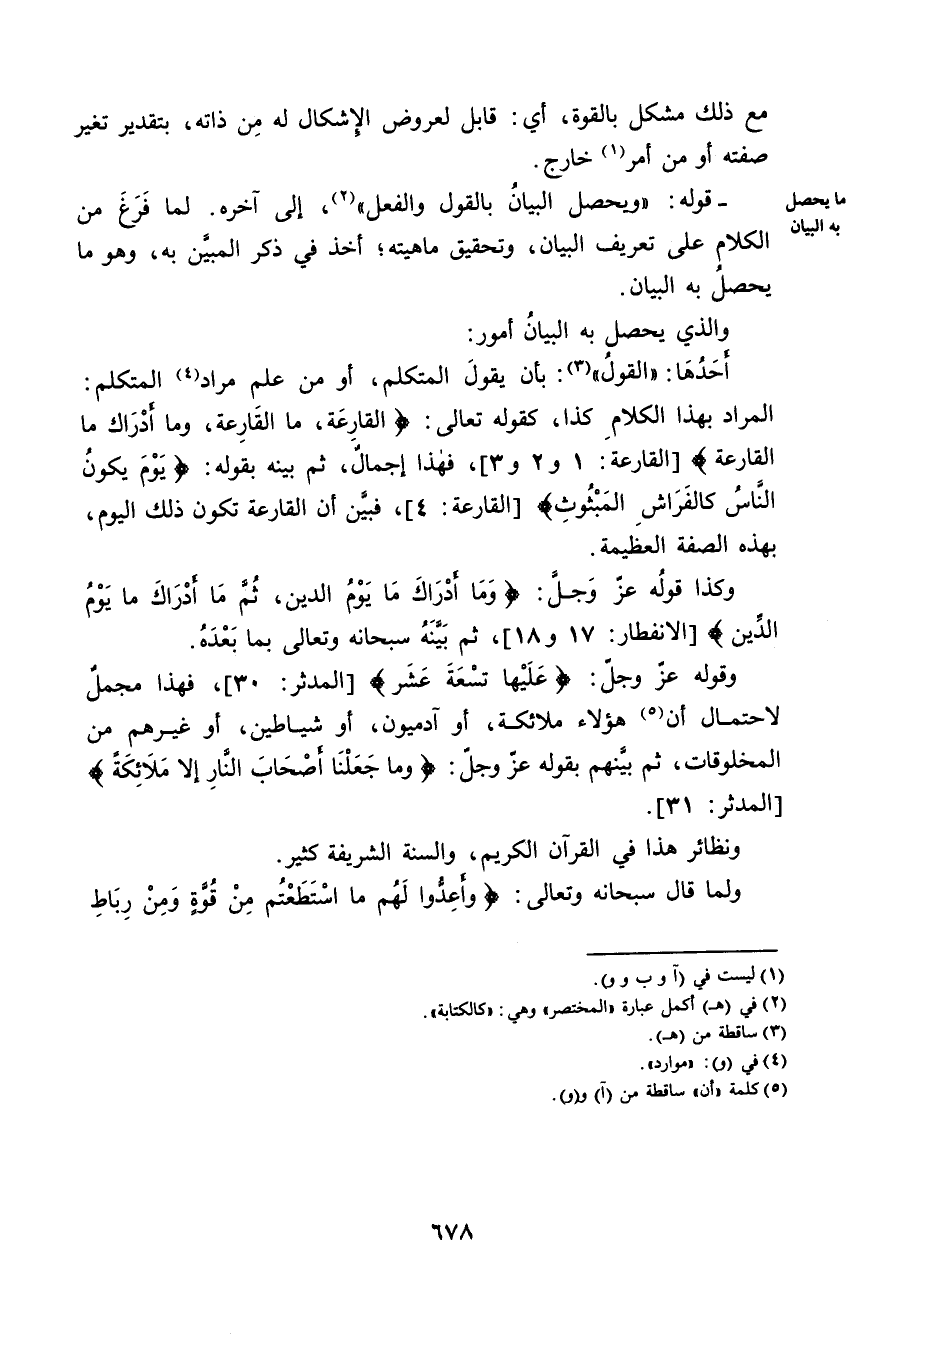 مع ذلك مشكل بالقوة، أي: قابل لعروض الإشكال له مِن ذاته، بتقدير تغير
صفته أو من أمر(١) خارج.
ما يحصل
به البيان
ـ قوله: «ويحصل البيانُ بالقول والفعل»(٢)، إلى آخره. لما فَرَغَ من
الكلام على تعريف البيان، وتحقيق ماهيته؛ أخذ في ذكر المبيَّن به، وهو ما
يحصلُ به البيان.
والذي يحصل به البيانُ أمور:
أَحَدُهَا: «القولُ»(٣): بأن يقولَ المتكلم، أو من علم مراد(٤) المتكلم:
المراد بهذا الكلامِ كذا، كقوله تعالى: ﴿القارِعَة، ما القَارِعة، وما أَدْرَاك ما
القارعة﴾ [القارعة: ١ و٢ و٣]، فهٰذا إجمالٌ، ثم بينه بقوله: ﴿يَوْمَ يكونُ
النَّاسُ كالفَرَاشِ المَبْثُوثِ﴾ [القارعة: ٤]، فبيَّن أن القارعة تكون ذلك اليوم،
بهذه الصفة العظيمة.
وكذا قولُه عزّ وَجلَّ: ﴿وَمَا أَدْرَاكَ مَا يَوْمُ الدين، ثُمَّ مَا أَدْرَاكَ ما يَوْمُ
الدِّين﴾ [الانفطار: ١٧ و١٨]، ثم بَيَّنَهُ سبحانه وتعالى بما بَعْدَهُ.
وقوله عزّ وجلّ: ﴿عَلَيها تسْعَةَ عَشَر﴾ [المدثر: ٣٠]، فهذا مجملٌ
لاحتمال أن(٥) هؤلاء ملائكة، أو آدميون، أو شياطين، أو غيرهم من
المخلوقات، ثم بيَّنهم بقوله عزّ وجلّ: ﴿وما جَعَلْنَا أَصْحَابَ النَّارِ إلا مَلَائِكَةً﴾
[المدثر: ٣١].
ونظائر هذا في القرآن الكريم، والسنة الشريفة كثير.
ولما قال سبحانه وتعالى: ﴿وأَعِدُّوا لَهُم ما اسْتَطَعْتُم مِنْ قُوَّةٍ وَمِنْ رِبَاطِ
(١) ليست في (آ و ب و و).
(٢) في (هـ) أكمل عبارة «المختصر» وهي: «كالكتابة».
(٣) ساقطة من (هـ).
(٤) في (و): «موارد».
(٥) كلمة «أن» ساقطة من (آ) و(و).
٦٧٨